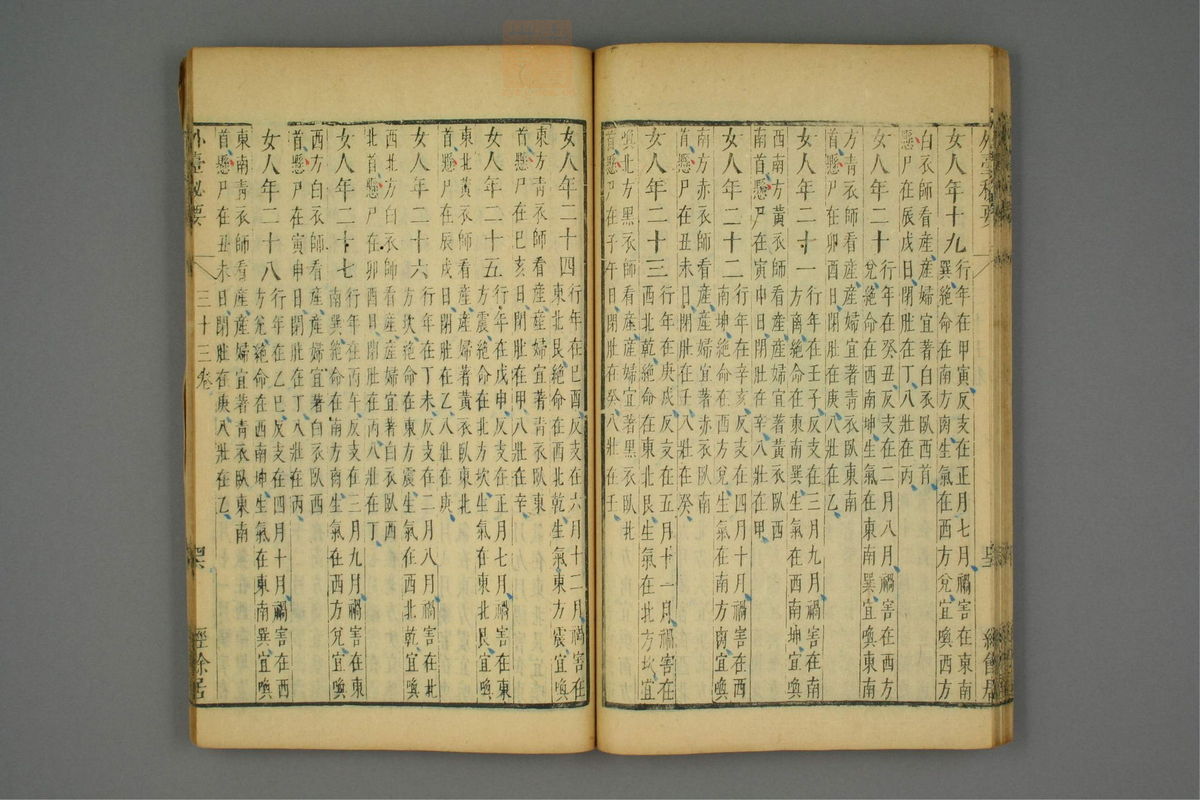 外臺秘要
經餘居
女人年十九行年在甲寅反支在正月七月禍害在東南
巽絕命在南方離生氣在西方兌宜喚西方
白衣師看產產婦宜著白衣臥西首
懸尸在辰戌日閉肚在丁八壯在丙
女人年二十行年在癸丑反支在二月八月禍害在西方
兌絕命在西南坤生氣在東南巽宜喚東南
方青衣師看產產婦宜著青衣臥東南
首懸尸在卯酉日閉肚在庚八壯在乙
女人年二十一行年在壬子反支在三月九月禍害在南
方離絕命在東南巽生氣在西南坤宜喚
西南方黃衣師看產產婦宜著黃衣臥西
南首懸尸在寅申日閉肚在辛八壯在甲
女人年二十二行年在辛亥反支在四月十月禍害在西
南坤絕命在西方兌生氣在南方離宜喚
南方赤衣師看產產婦宜著赤衣臥南
首懸尸在丑未日閉肚在壬八壯在癸
女人年二十三行年在庚戌反支在五月十一月禍害在
西北乾絕命在東北艮生氣在北方坎宜
喚北方黑衣師看產產婦宜著黑衣臥北
首懸尸在子午日閉肚在癸八壯在壬
女人年二十四行年在己酉反支在六月十二月禍害在
東北艮絕命在西北乾生氣東方震宜喚
東方青衣師看產產婦宜著青衣臥東
首懸尸在巳亥日閉肚在甲八壯在辛
女人年二十五行年在戊申反支在正月七月禍害在東
方震絕命在北方坎生氣在東北艮宜喚
東北黃衣師看產產婦著黃衣臥東北
首懸尸在辰戌日閉肚在乙八壯在庚
女人年二十六行年在丁未反支在二月八月禍害在北
方坎絕命在東方震生氣在西北乾宜喚
西北方白衣師看產產婦宜著白衣臥西
北首懸尸在卯酉日閉肚在丙八壯在丁
女人年二十七行年在丙午反支在三月九月禍害在東
南巽絕命在南方離生氣在西方兌宜喚
西方白衣師看產產婦宜著白衣臥西
首懸尸在寅申日閉肚在丁八壯在丙
女人年二十八行年在乙巳反支在四月十月禍害在西
方兌絕命在西南坤生氣在東南巽宜喚
東南青衣師看產產婦宜著青衣臥東南
首懸尸在丑未日閉肚在庚八壯在乙
外臺秘要
三十三卷
經餘居